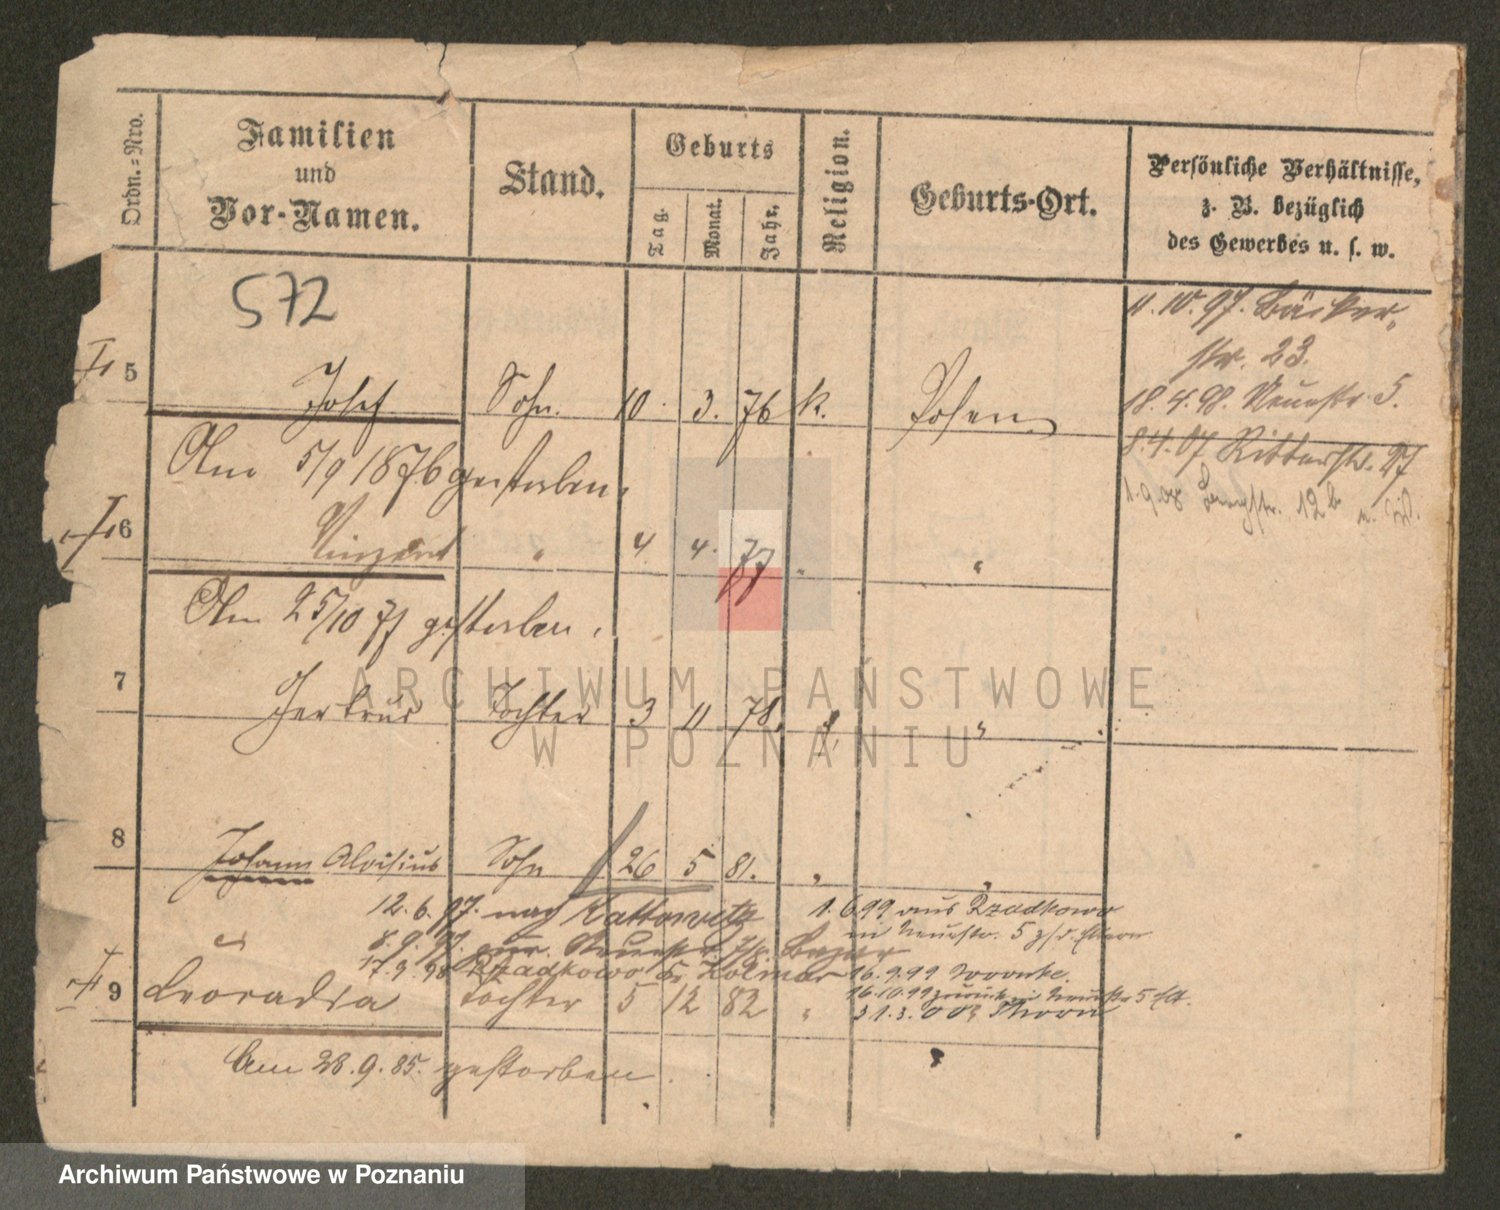 Ordn.=Nro.
Familien
und
Vor-Namen.
Stand.
Geburts
Tag.
Monat.
Jahr.
Religion.
Geburts-Ort.
Persönliche Verhältnisse,
z. B. bezüglich
des Gewerbes u. s. w.
572
11.10.97. Bäcker-
str. 23.
18.4.98. Neuestr. 5.
8.4.07 Ritterstr. 27
1.9.08 12b
5 Josef Sohn. 10. 3. 76 k. Posen
Am 5/9 1876 gestorben.
6 Vinzent " 4 4. 77 " "
Am 25/10 77 gestorben.
7 Gertrud Tochter 3 11 78. "
8 Johann Aloisius Sohn 26 5 81. " "
12.6.97. nach Kattowitz
1.6.99 aus Rzadkowo
in Neuestr. 5
8.9.97. Neuestr. 7/8. Bazar
17.9.98 Rzadkowo Kr. Kolmar
16.9.99 Wronke
16.10.99 zurück Neuestr 5
31.3.00 Thorn
9 Leocadia Tochter 5 12 82 "
Am 28.9.85. gestorben.
ARCHIWUM PAŃSTWOWE
W POZNANIU
Archiwum Państwowe w Poznaniu